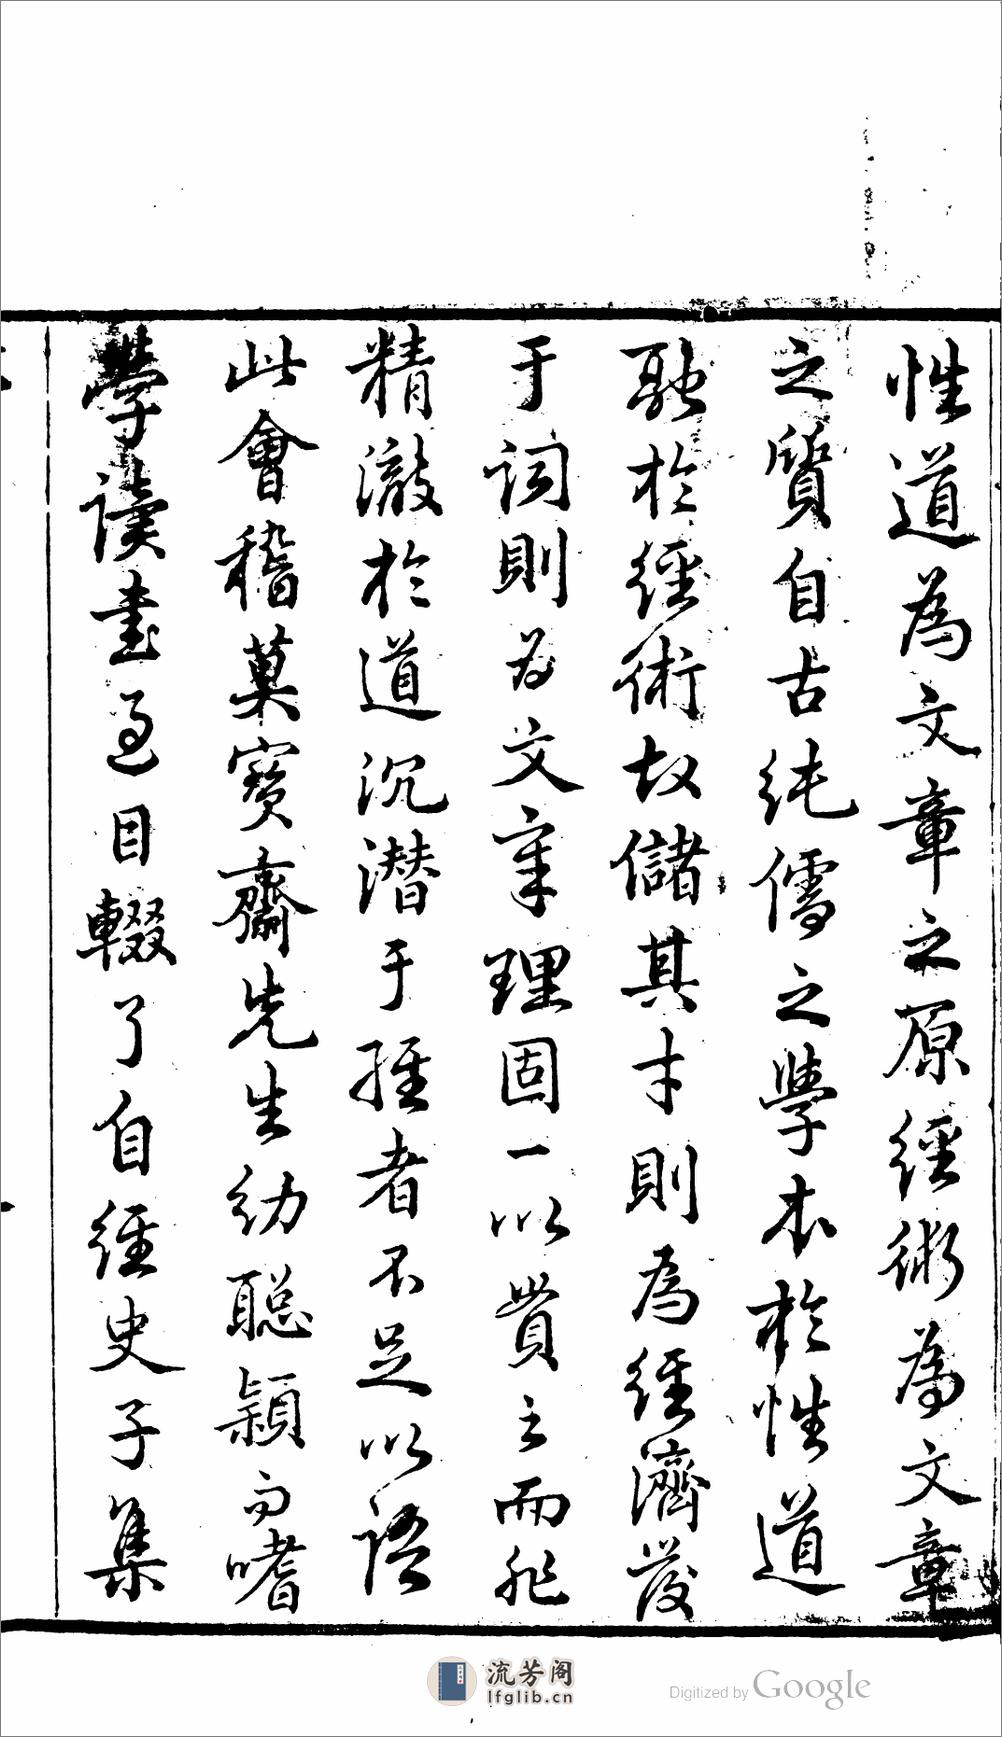 性道為文章之原經術為文章
之質自古純儒之學本於性道
融於經術故儲其才則為經濟發
于詞則為文章理固一以貫之而非
精澈於道沉潛于經者不足以語
此會稽莫寶齋先生幼聰穎而嗜
學讀書過目輟了自經史子集
流芳阁
lfglib.cn
Digitized by Google